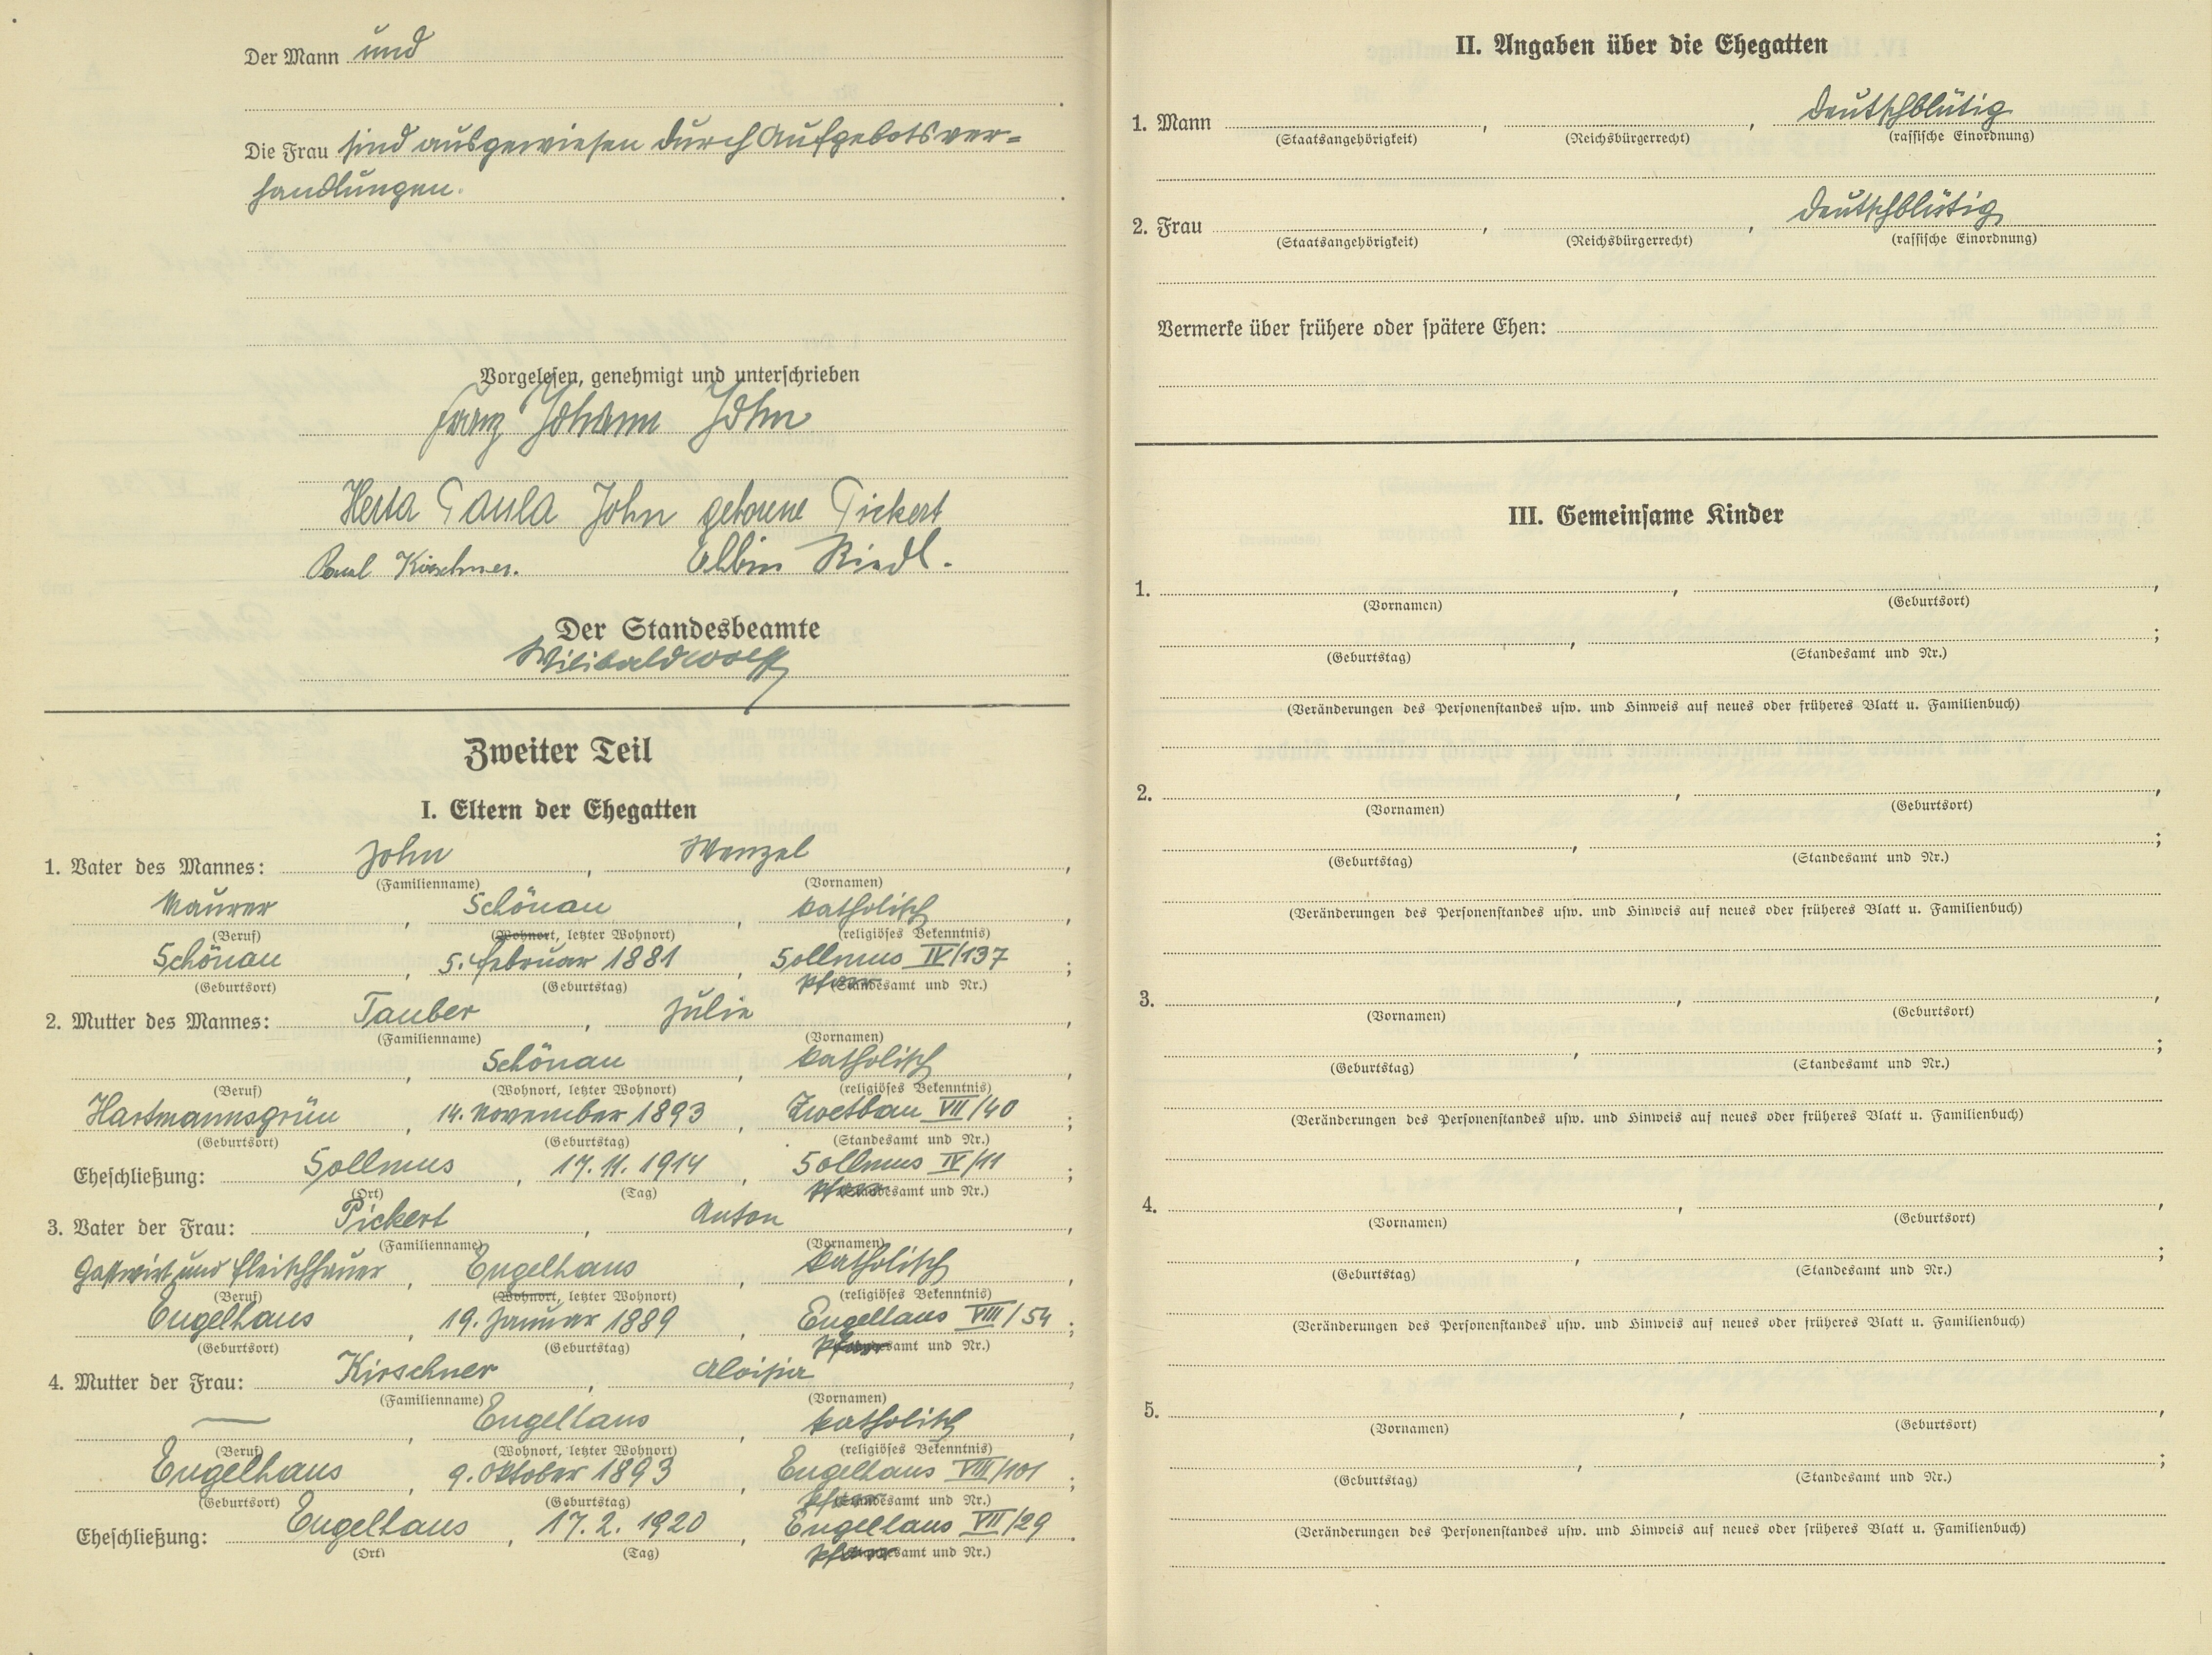 Der Mann und
Die Frau sind ausgewiesen durch Aufgebotsver=
handlungen.
Vorgelesen, genehmigt und unterschrieben
Franz Johann John
Herta Paula John geborene Pickert
Paul Kirschner. Albin Riedl.
Der Standesbeamte
Wilibald Wolff
Zweiter Teil
I. Eltern der Ehegatten
1. Vater des Mannes: John, Wenzel,
(Familienname) (Vornamen)
Maurer, Schönau, katholisch,
(Beruf) (Wohnort, letzter Wohnort) (religiöses Bekenntnis)
Schönau, 5. Februar 1881, Sollmus IV/137;
(Geburtsort) (Geburtstag) Pfarr (Standesamt und Nr.)
2. Mutter des Mannes: Tauber, Julie,
(Familienname) (Vornamen)
Schönau, katholisch,
(Beruf) (Wohnort, letzter Wohnort) (religiöses Bekenntnis)
Hartmannsgrün, 14. November 1893, Zwetbau VII/40;
(Geburtsort) (Geburtstag) (Standesamt und Nr.)
Eheschließung: Sollmus, 17. 11. 1914, Sollmus IV/11;
(Ort) (Tag) Pfarr (Standesamt und Nr.)
3. Vater der Frau: Pickert, Anton,
(Familienname) (Vornamen)
Gastwirt und Fleischhauer, Engelhaus, katholisch,
(Beruf) (Wohnort, letzter Wohnort) (religiöses Bekenntnis)
Engelhaus, 19. Januar 1889, Engelhaus VIII/54;
(Geburtsort) (Geburtstag) Pfarr (Standesamt und Nr.)
4. Mutter der Frau: Kirschner, Aloisia,
(Familienname) (Vornamen)
—, Engelhaus, katholisch,
(Beruf) (Wohnort, letzter Wohnort) (religiöses Bekenntnis)
Engelhaus, 9. Oktober 1893, Engelhaus VIII/101;
(Geburtsort) (Geburtstag) Pfarr (Standesamt und Nr.)
Eheschließung: Engelhaus, 17. 2. 1920, Engelhaus VII/29.
(Ort) (Tag) Pfarr (Standesamt und Nr.)
II. Angaben über die Ehegatten
1. Mann , , deutschblütig
(Staatsangehörigkeit) (Reichsbürgerrecht) (rassische Einordnung)
2. Frau , , deutschblütig
(Staatsangehörigkeit) (Reichsbürgerrecht) (rassische Einordnung)
Vermerke über frühere oder spätere Ehen:
III. Gemeinsame Kinder
1. , ,
(Vornamen) (Geburtsort)
, ;
(Geburtstag) (Standesamt und Nr.)
(Veränderungen des Personenstandes usw. und Hinweis auf neues oder früheres Blatt u. Familienbuch)
2. , ,
(Vornamen) (Geburtsort)
, ;
(Geburtstag) (Standesamt und Nr.)
(Veränderungen des Personenstandes usw. und Hinweis auf neues oder früheres Blatt u. Familienbuch)
3. , ,
(Vornamen) (Geburtsort)
, ;
(Geburtstag) (Standesamt und Nr.)
(Veränderungen des Personenstandes usw. und Hinweis auf neues oder früheres Blatt u. Familienbuch)
4. , ,
(Vornamen) (Geburtsort)
, ;
(Geburtstag) (Standesamt und Nr.)
(Veränderungen des Personenstandes usw. und Hinweis auf neues oder früheres Blatt u. Familienbuch)
5. , ,
(Vornamen) (Geburtsort)
, ;
(Geburtstag) (Standesamt und Nr.)
(Veränderungen des Personenstandes usw. und Hinweis auf neues oder früheres Blatt u. Familienbuch)